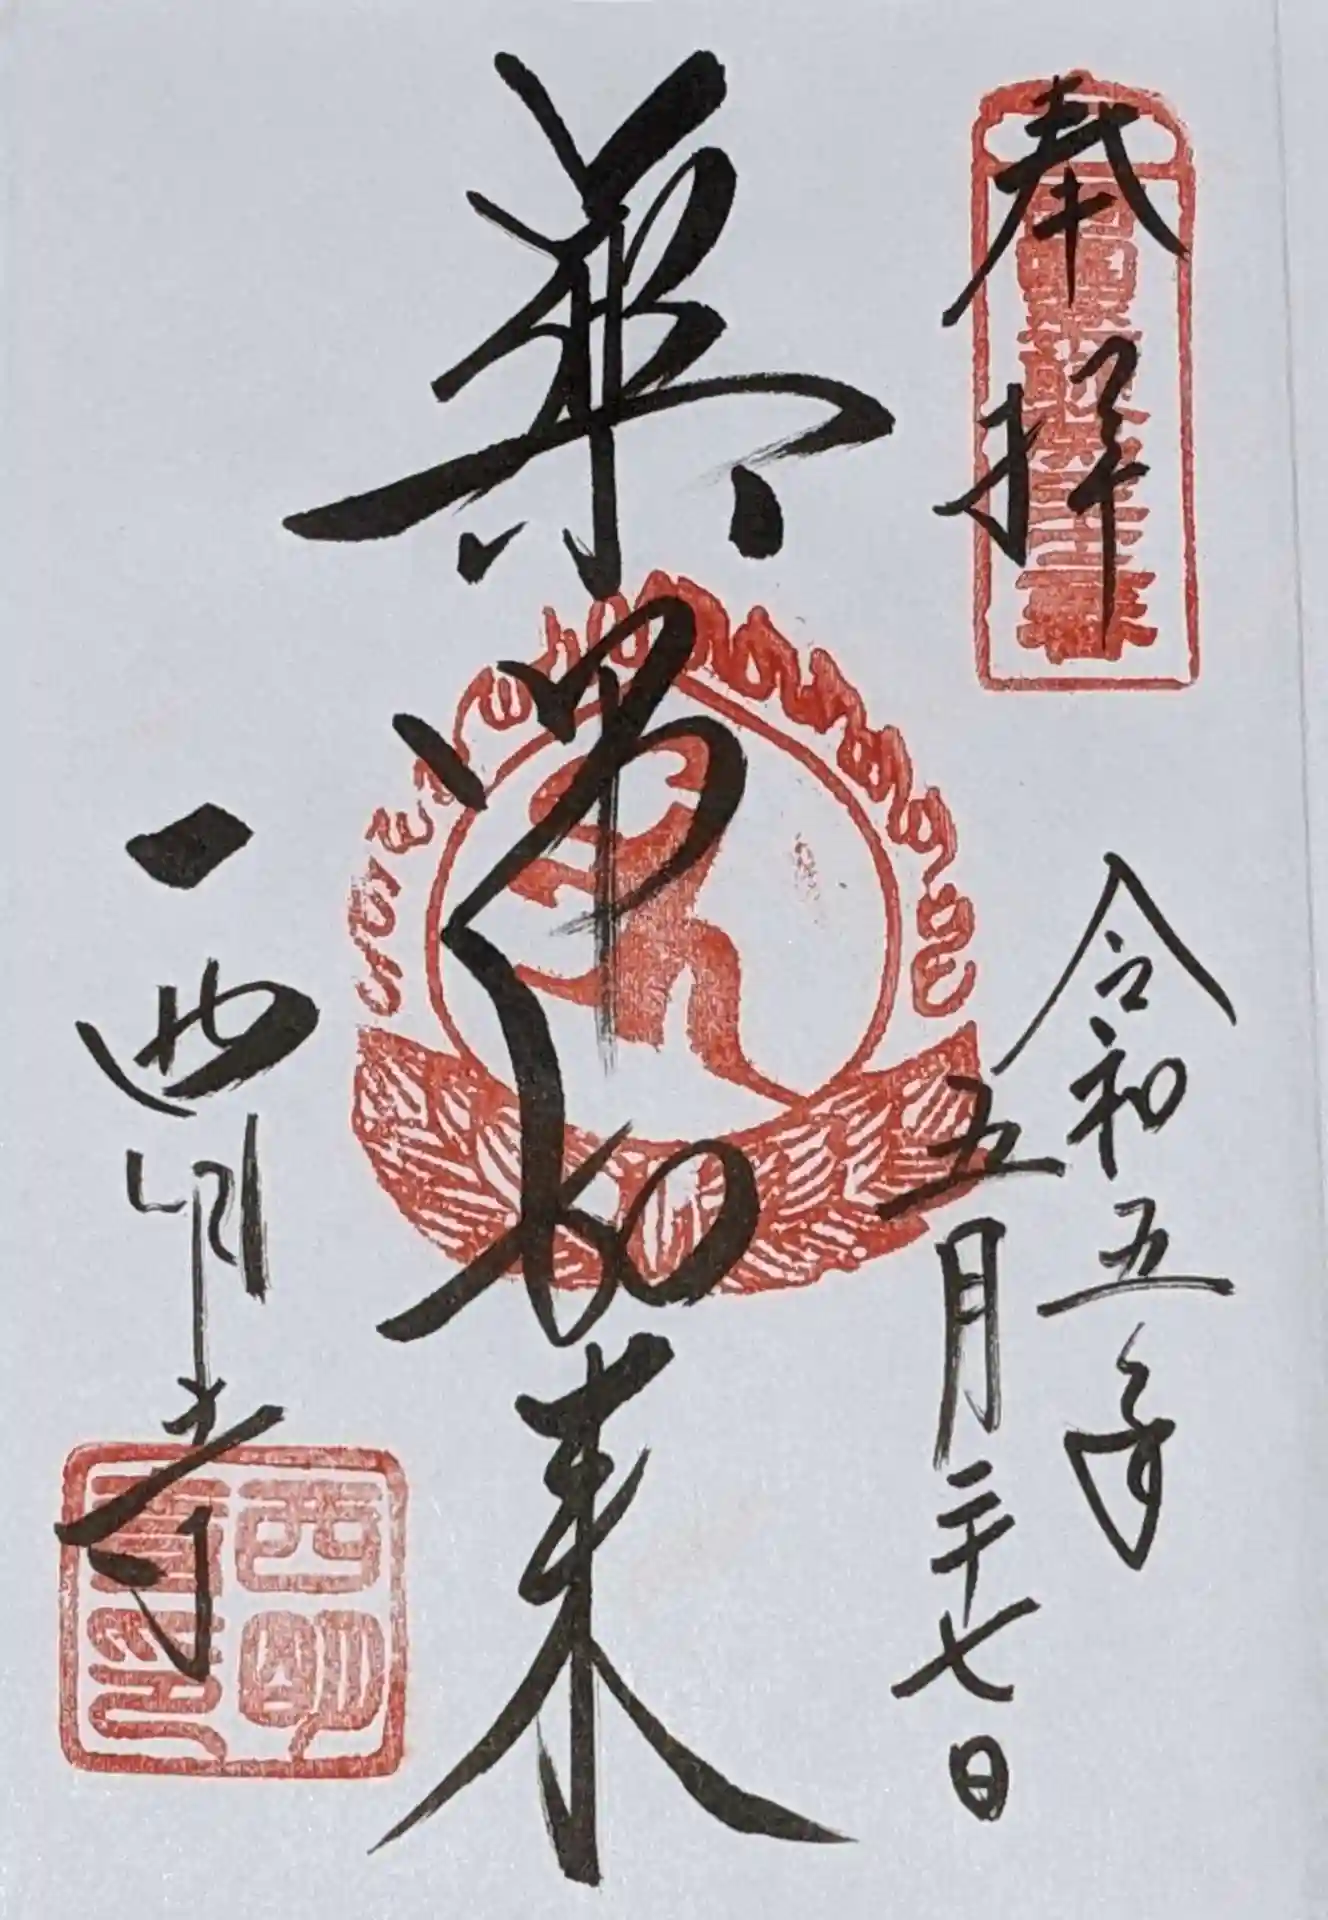 奉拝
令和五年
五月二十七日
薬師如来
西明寺
西明
寺印